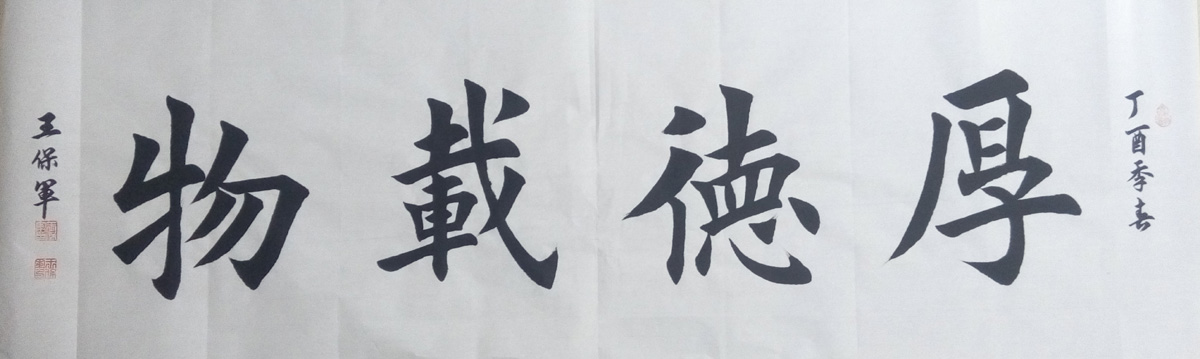 丁酉季春
厚德載物
王保軍